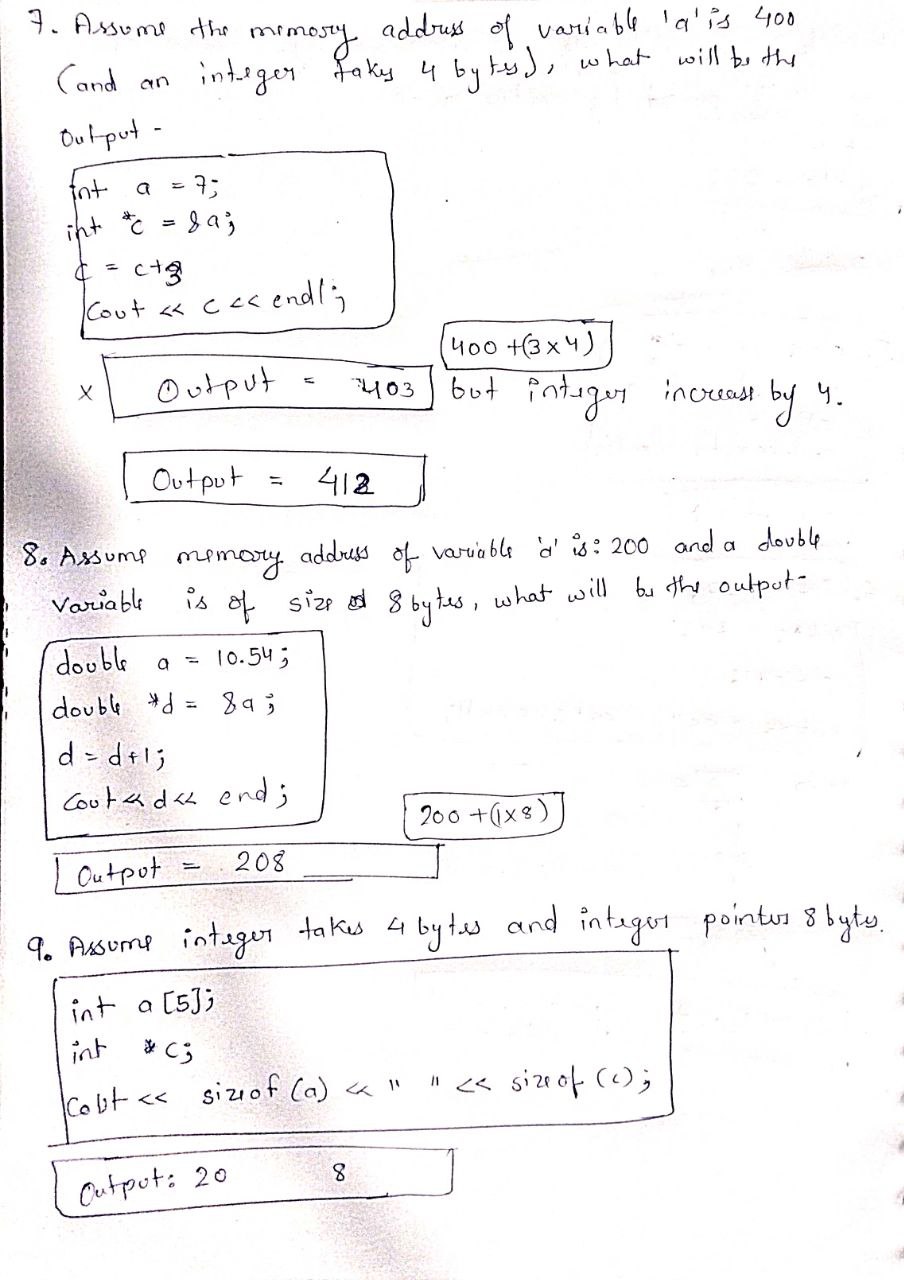 7. Assume the memory address of variable 'a' is 400
(and an integer takes 4 bytes), what will be the
Output -
int a = 7;
int *c = &a;
c = c+3
Cout << c << endl;
400 +(3x4)
x Output = 403 but integer increase by 4.
Output = 412
8. Assume memory address of variable 'a' is: 200 and a double
Variable is of size 8 bytes, what will be the output-
double a = 10.54;
double *d = &a;
d = d+1;
Cout << d << end;
200 +(1x8)
Output = 208
9. Assume integer takes 4 bytes and integer pointer 8 bytes.
int a [5];
int * c;
Cout << sizeof (a) << " " << sizeof (c);
Output: 20 8